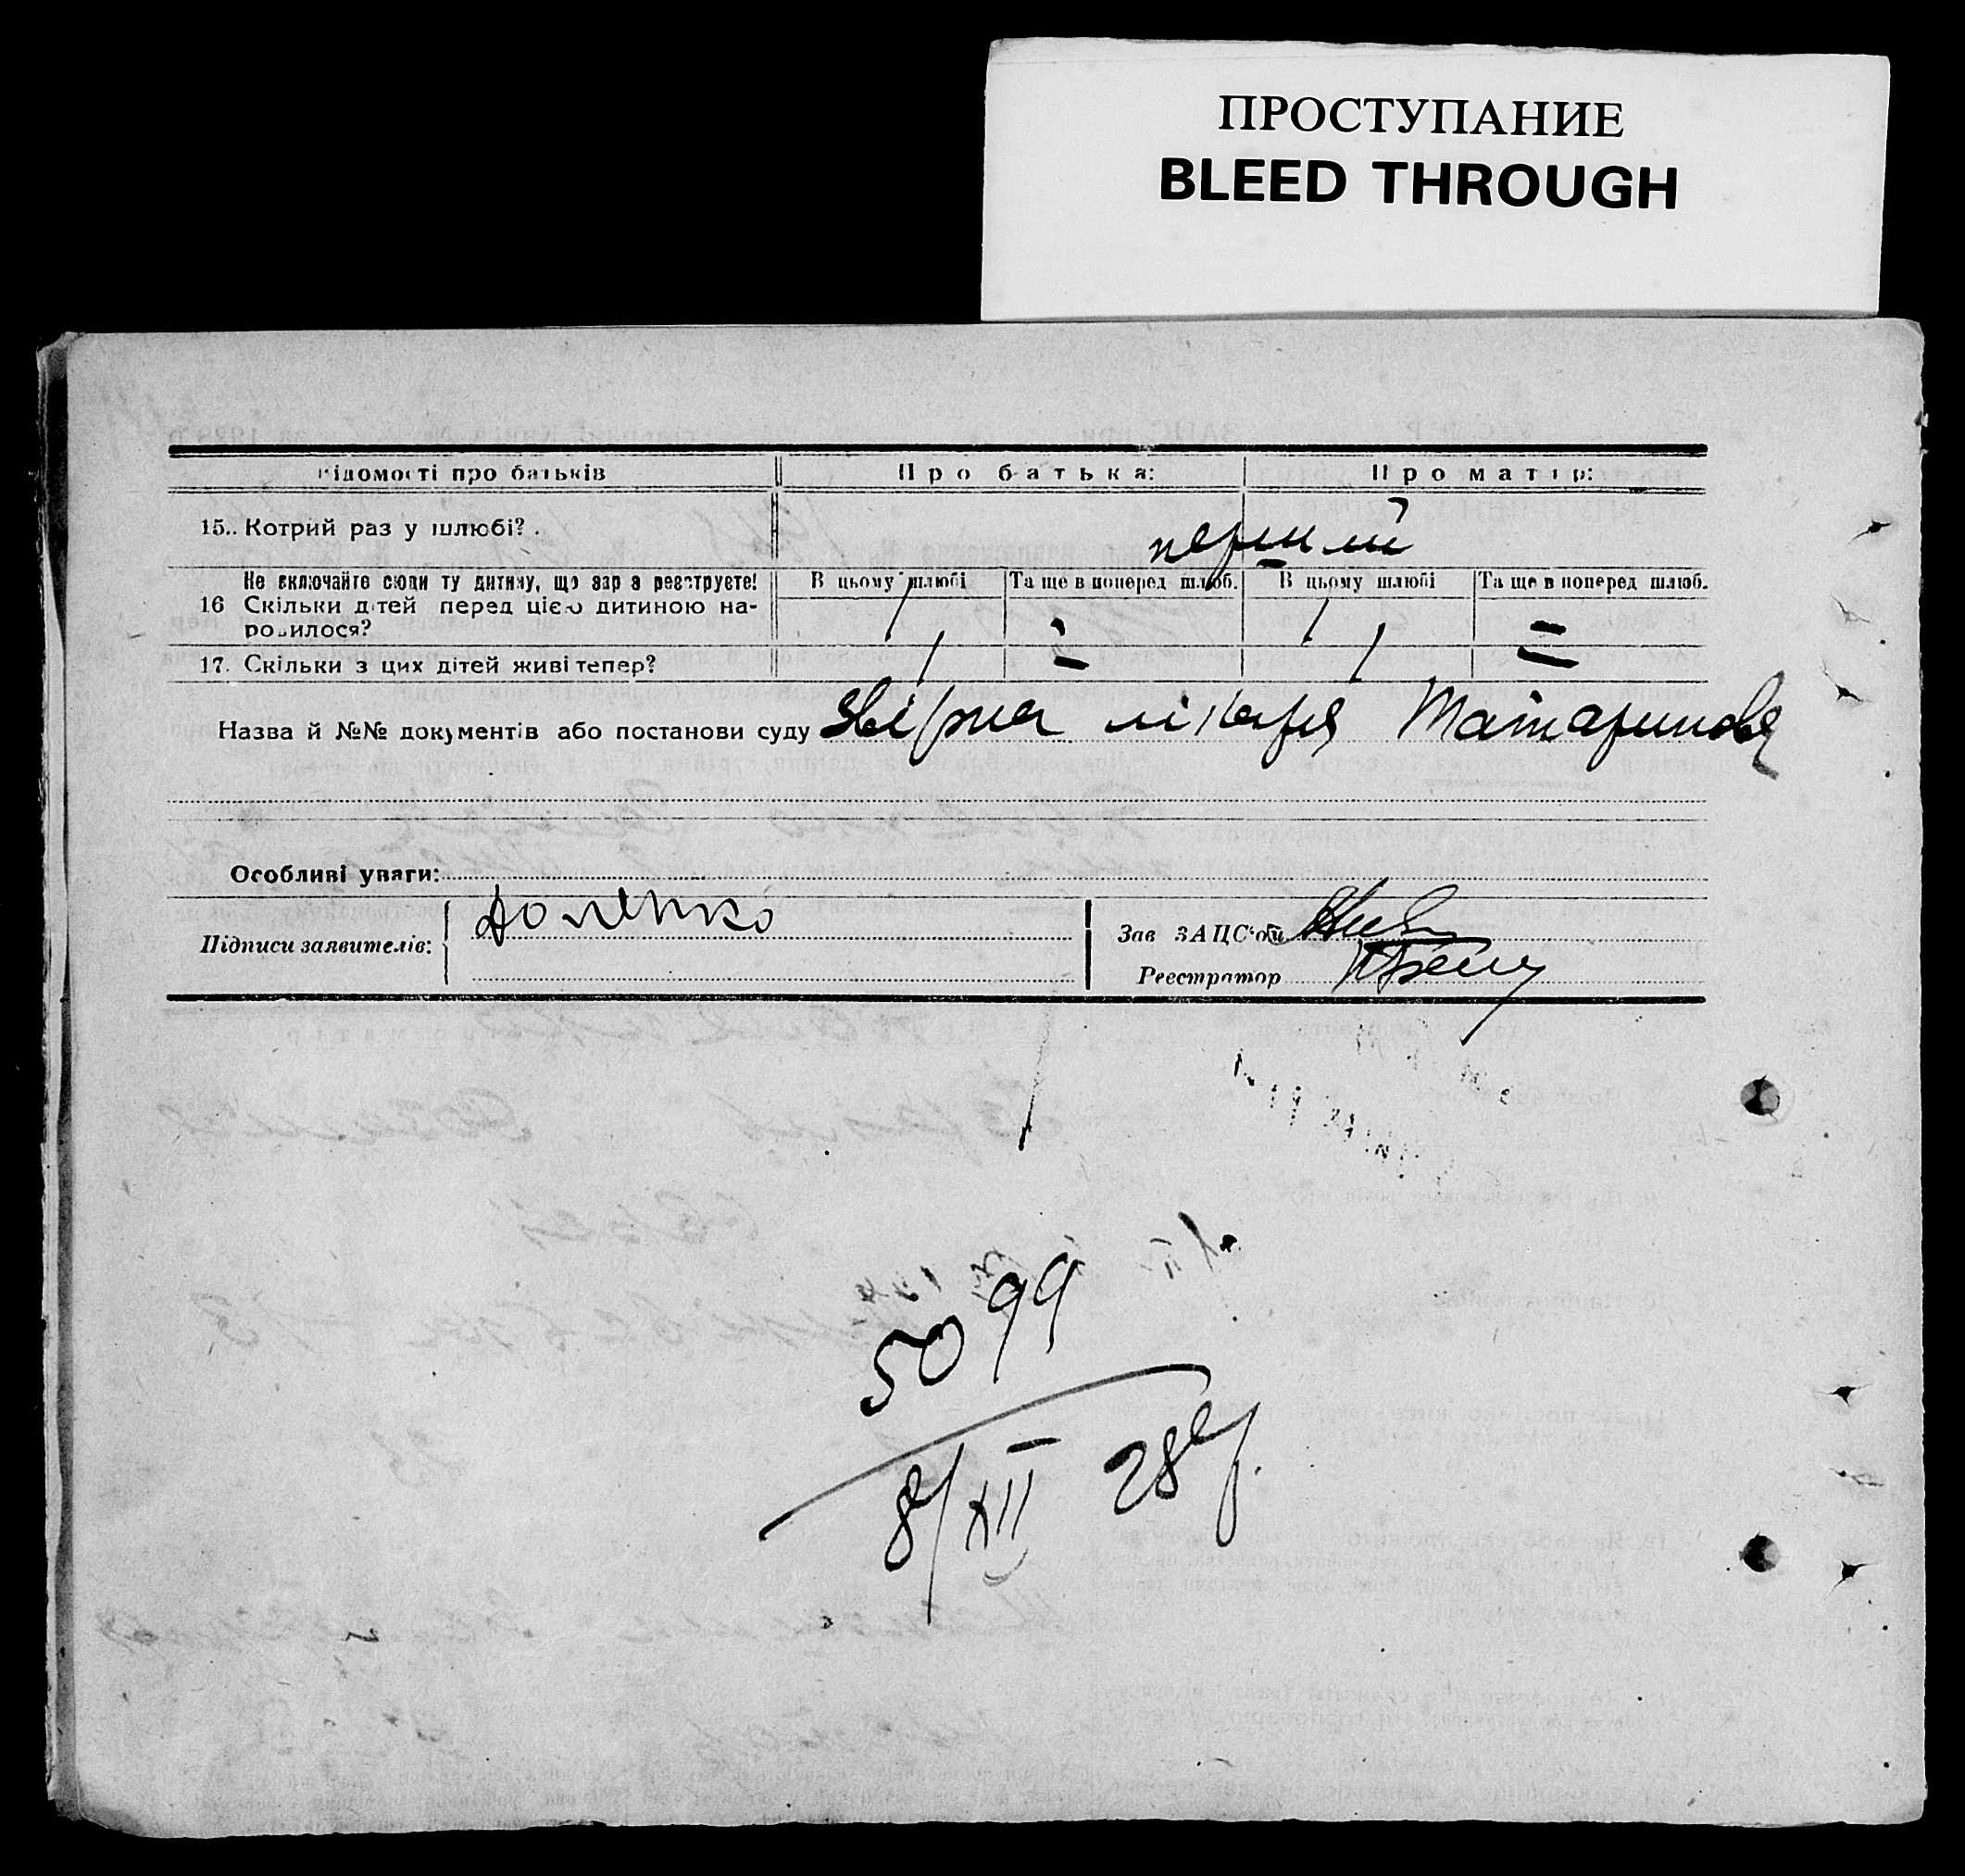 ПРОСТУПАНИЕ
BLEED THROUGH
Відомості про батьків Про батька: Про матір:
15.. Котрий раз у шлюбі? . перший
Не включайте сюди ту дитину, що зараз реєструєте! В цьому шлюбі Та ще в поперед шлюб. В цьому шлюбі Та ще в поперед шлюб.
16 Скільки дітей перед цією дитиною на-
родилося? 1 - 1 -
17. Скільки з цих дітей живі тепер? 1 - 1 -
Назва й №№ документів або постанови суду лікаря Татаринова
Особливі уваги:
Підписи заявителів: Доленко Зав ЗАЦС'ом
Реєстратор
5099
8/XII 28 р.